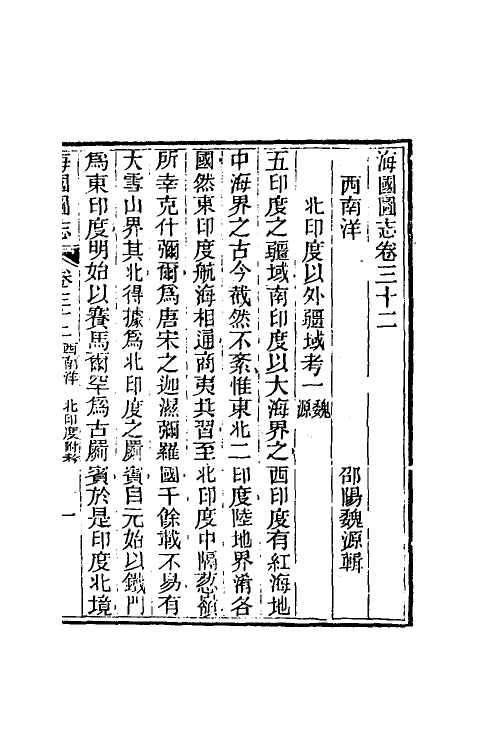 海國圖志卷三十二
西南洋 邵陽魏源輯
北印度以外疆域考一 魏源
五印度之疆域南印度以大海界之西印度有紅海地
中海界之古今截然不紊惟東北二印度陸地界淆各
國然東印度航海相通商夷共習至北印度中隔蔥嶺
所幸克什彌爾爲唐宋之迦濕彌羅國千餘載不易有
大雪山界其北得據爲北印度之罽賓自元始以鐵門
爲東印度明始以賽馬爾罕爲古罽賓於是印度北境
海國圖志 卷三十二 西南洋 北印度附考 一